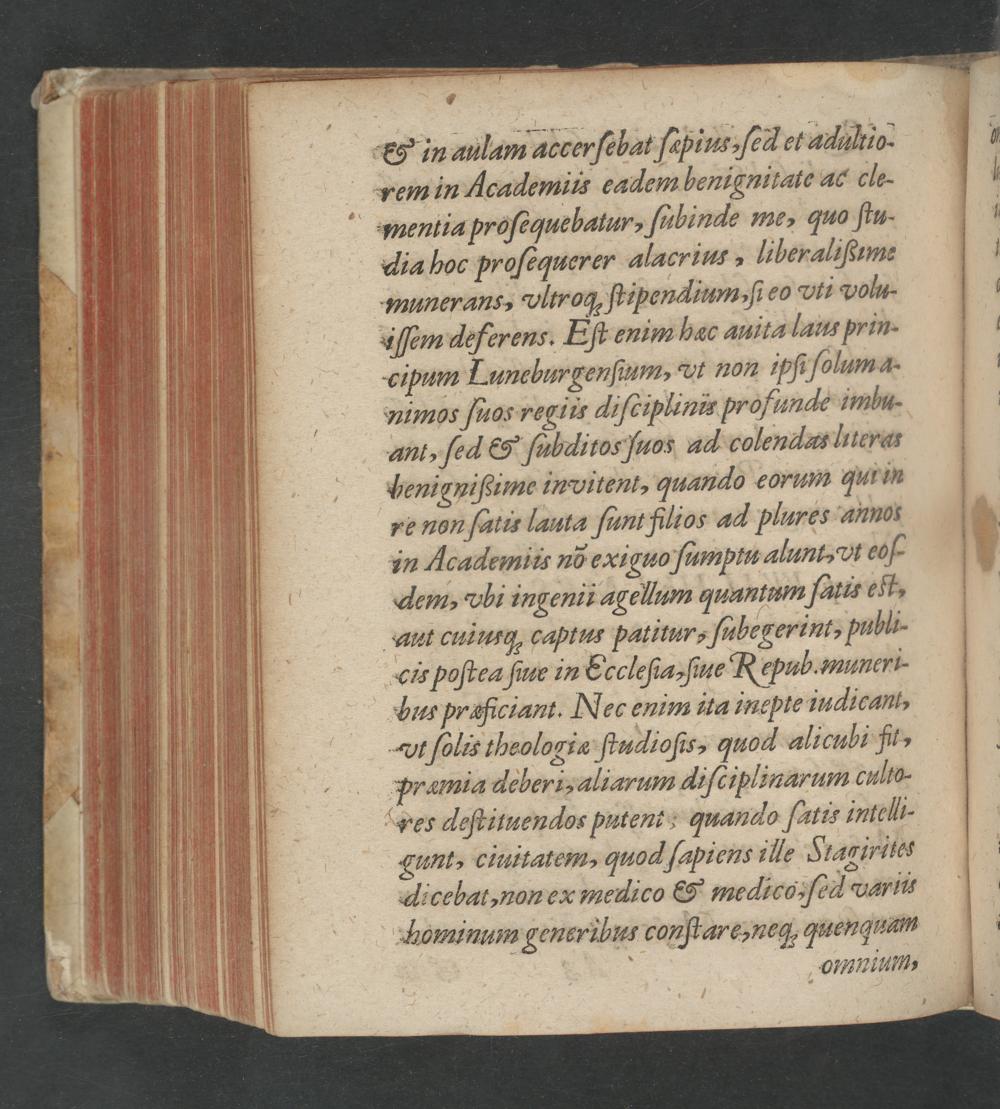 & in aulam accerſebat ſæpius, ſed et adultio-
rem in Academiis eadem benignitate ac cle-
mentia proſequebatur, ſubinde me, quo ſtu-
dia hoc proſequerer alacrius, liberalißime
munerans, vltroq; ſtipendium, ſi eo vti volu-
iſſem deferens. Eſt enim hæc auita laus prin-
cipum Luneburgenſium, vt non ipſi ſolum a-
nimos ſuos regiis diſciplinis profunde imbu-
ant, ſed & ſubditos ſuos ad colendas literas
benignißime invitent, quando eorum qui in
re non ſatis lauta ſunt filios ad plures annos
in Academiis nõ exiguo ſumptu alunt, vt eoſ-
dem, vbi ingenii agellum quantum ſatis eſt,
aut cuiusq; captus patitur, ſubegerint, publi-
cis poſtea ſiue in Eccleſia, ſiue Repub. muneri-
bus præficiant. Nec enim ita inepte iudicant,
vt ſolis theologiæ ſtudioſis, quod alicubi fit,
præmia deberi, aliarum diſciplinarum culto-
res deſtituendos putent; quando ſatis intelli-
gunt, ciuitatem, quod ſapiens ille Stagirites
dicebat, non ex medico & medico, ſed variis
hominum generibus conſtare, neq; quenquam
omnium,